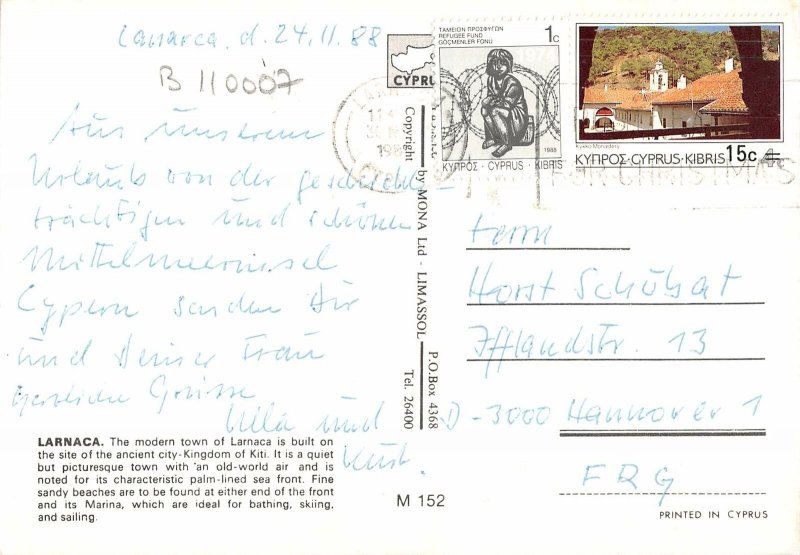 Larnaca, d. 24.11.88
B 110007
Aus unserem
Urlaub von der geschichts-
trächtigen und schönen
Mittelmeerinsel
Cypern senden Dir
und Deiner Frau
herzliche Grüsse
Ulla und
Kurt.
LARNACA. The modern town of Larnaca is built on
the site of the ancient city-Kingdom of Kiti. It is a quiet
but picturesque town with an old-world air and is
noted for its characteristic palm-lined sea front. Fine
sandy beaches are to be found at either end of the front
and its Marina, which are ideal for bathing, skiing,
and sailing.
CYPRU
Copyright by MONA Ltd - LIMASSOL - P.O.Box 4368
Tel. 26400
M 152
ΤΑΜΕΙΟΝ ΠΡΟΣΦΥΓΩΝ
REFUGEE FUND
GÖÇMENLER FONU
1c
1988
ΚΥΠΡΟΣ · CYPRUS · KIBRIS
Kykko Monastery
ΚΥΠΡΟΣ·CYPRUS·KIBRIS 15c
FOR CHRISTMAS
Herrn
Horst
Ifflandstr. 13
D-3000 Hannover 1
FRG
PRINTED IN CYPRUS